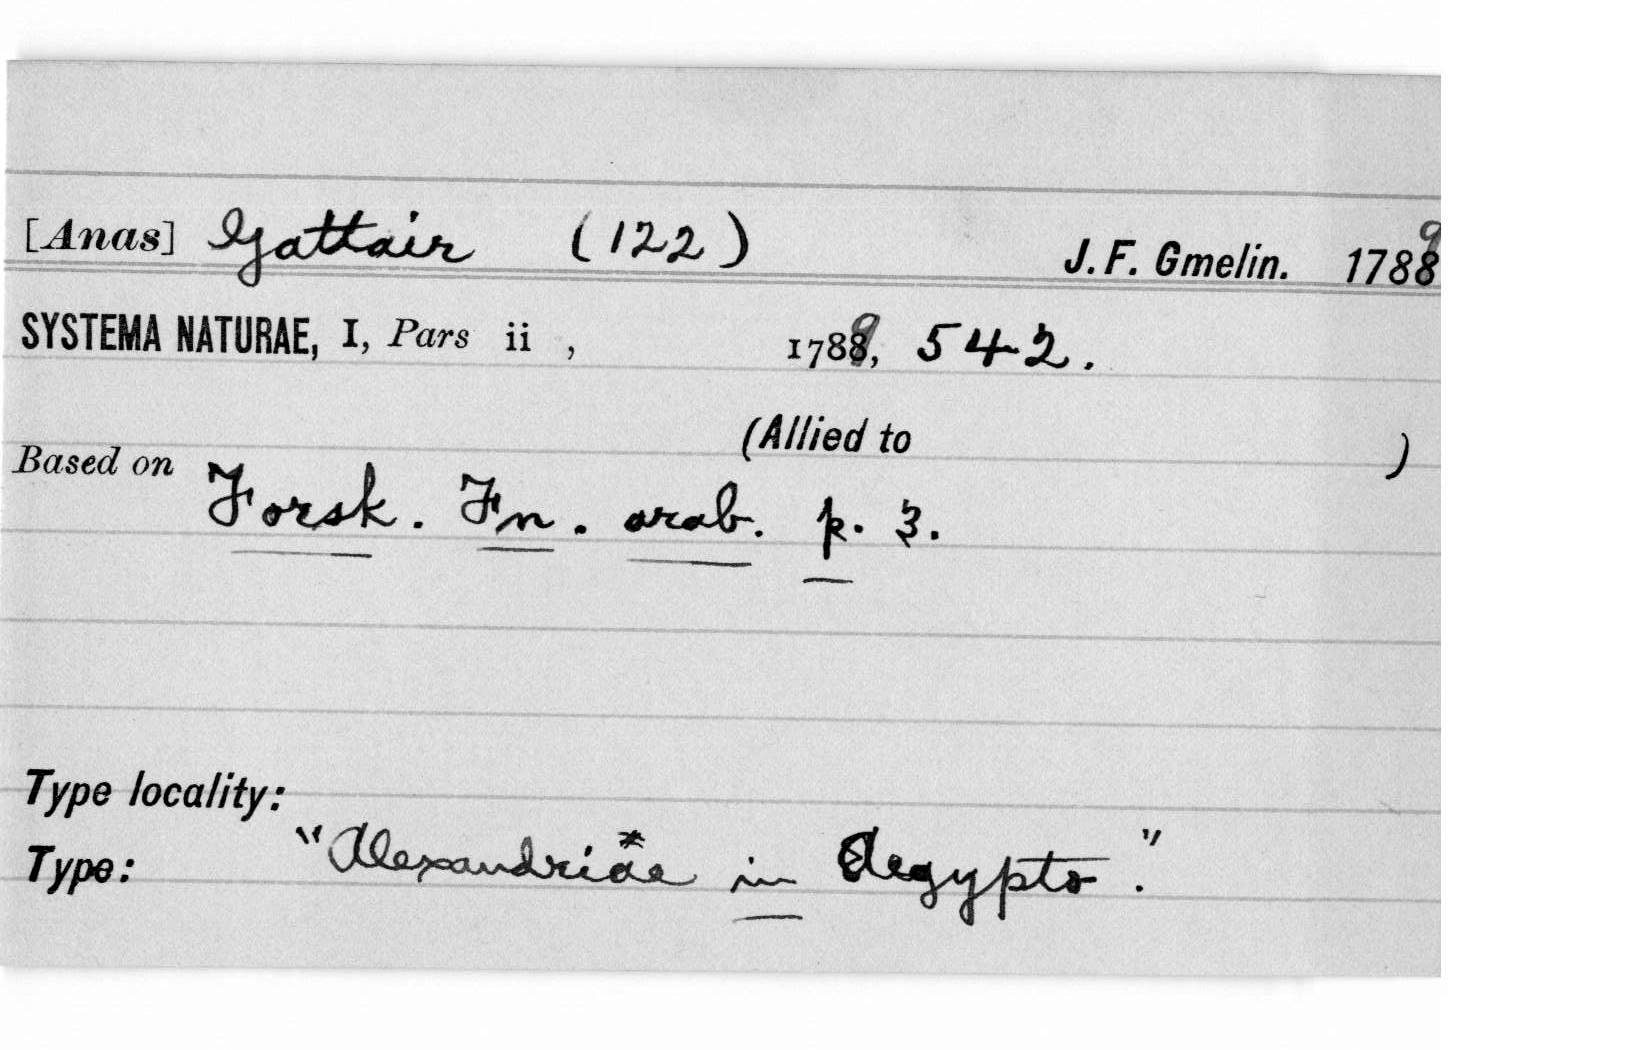 [Anas] Gattair (122) J. F. Gmelin. 1789
SYSTEMA NATURAE, I, Pars ii , 1789, 542.
(Allied to )
Based on Forsk. Fn. arab. p. 3.
Type locality:
Type: "Alexandriae* in Aegypto."